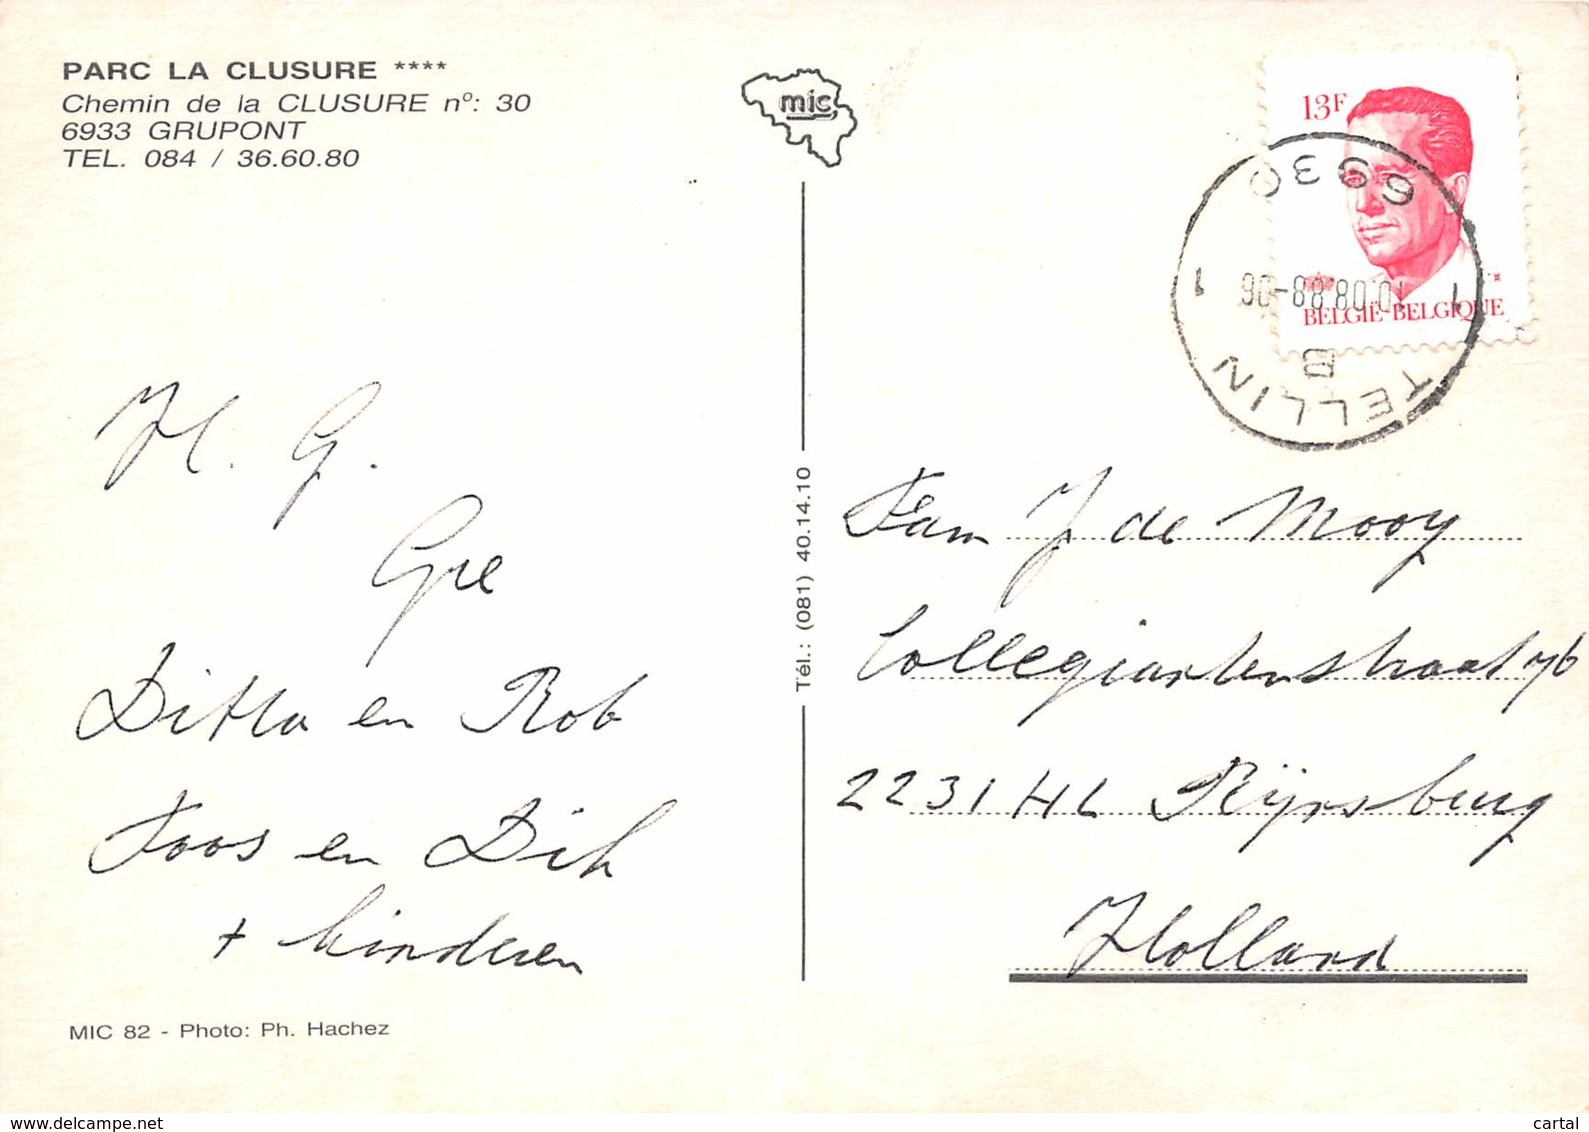 PARC LA CLUSURE ****
Chemin de la CLUSURE nº: 30
6933 GRUPONT
TEL. 084 / 36.60.80
mic
13F
6930
10.08.88-06
1 1
BELGIË-BELGIQUE
B
TELLIN
H. G.
Gre
Ditta en Rob
Koos en Dik
+ kinderen
MIC 82 - Photo: Ph. Hachez
Tél.: (081) 40.14.10
Fam J de Mooy
Collegiantenstraat 76
2231 HL Rijnsburg
Holland
www.delcampe.net
cartal